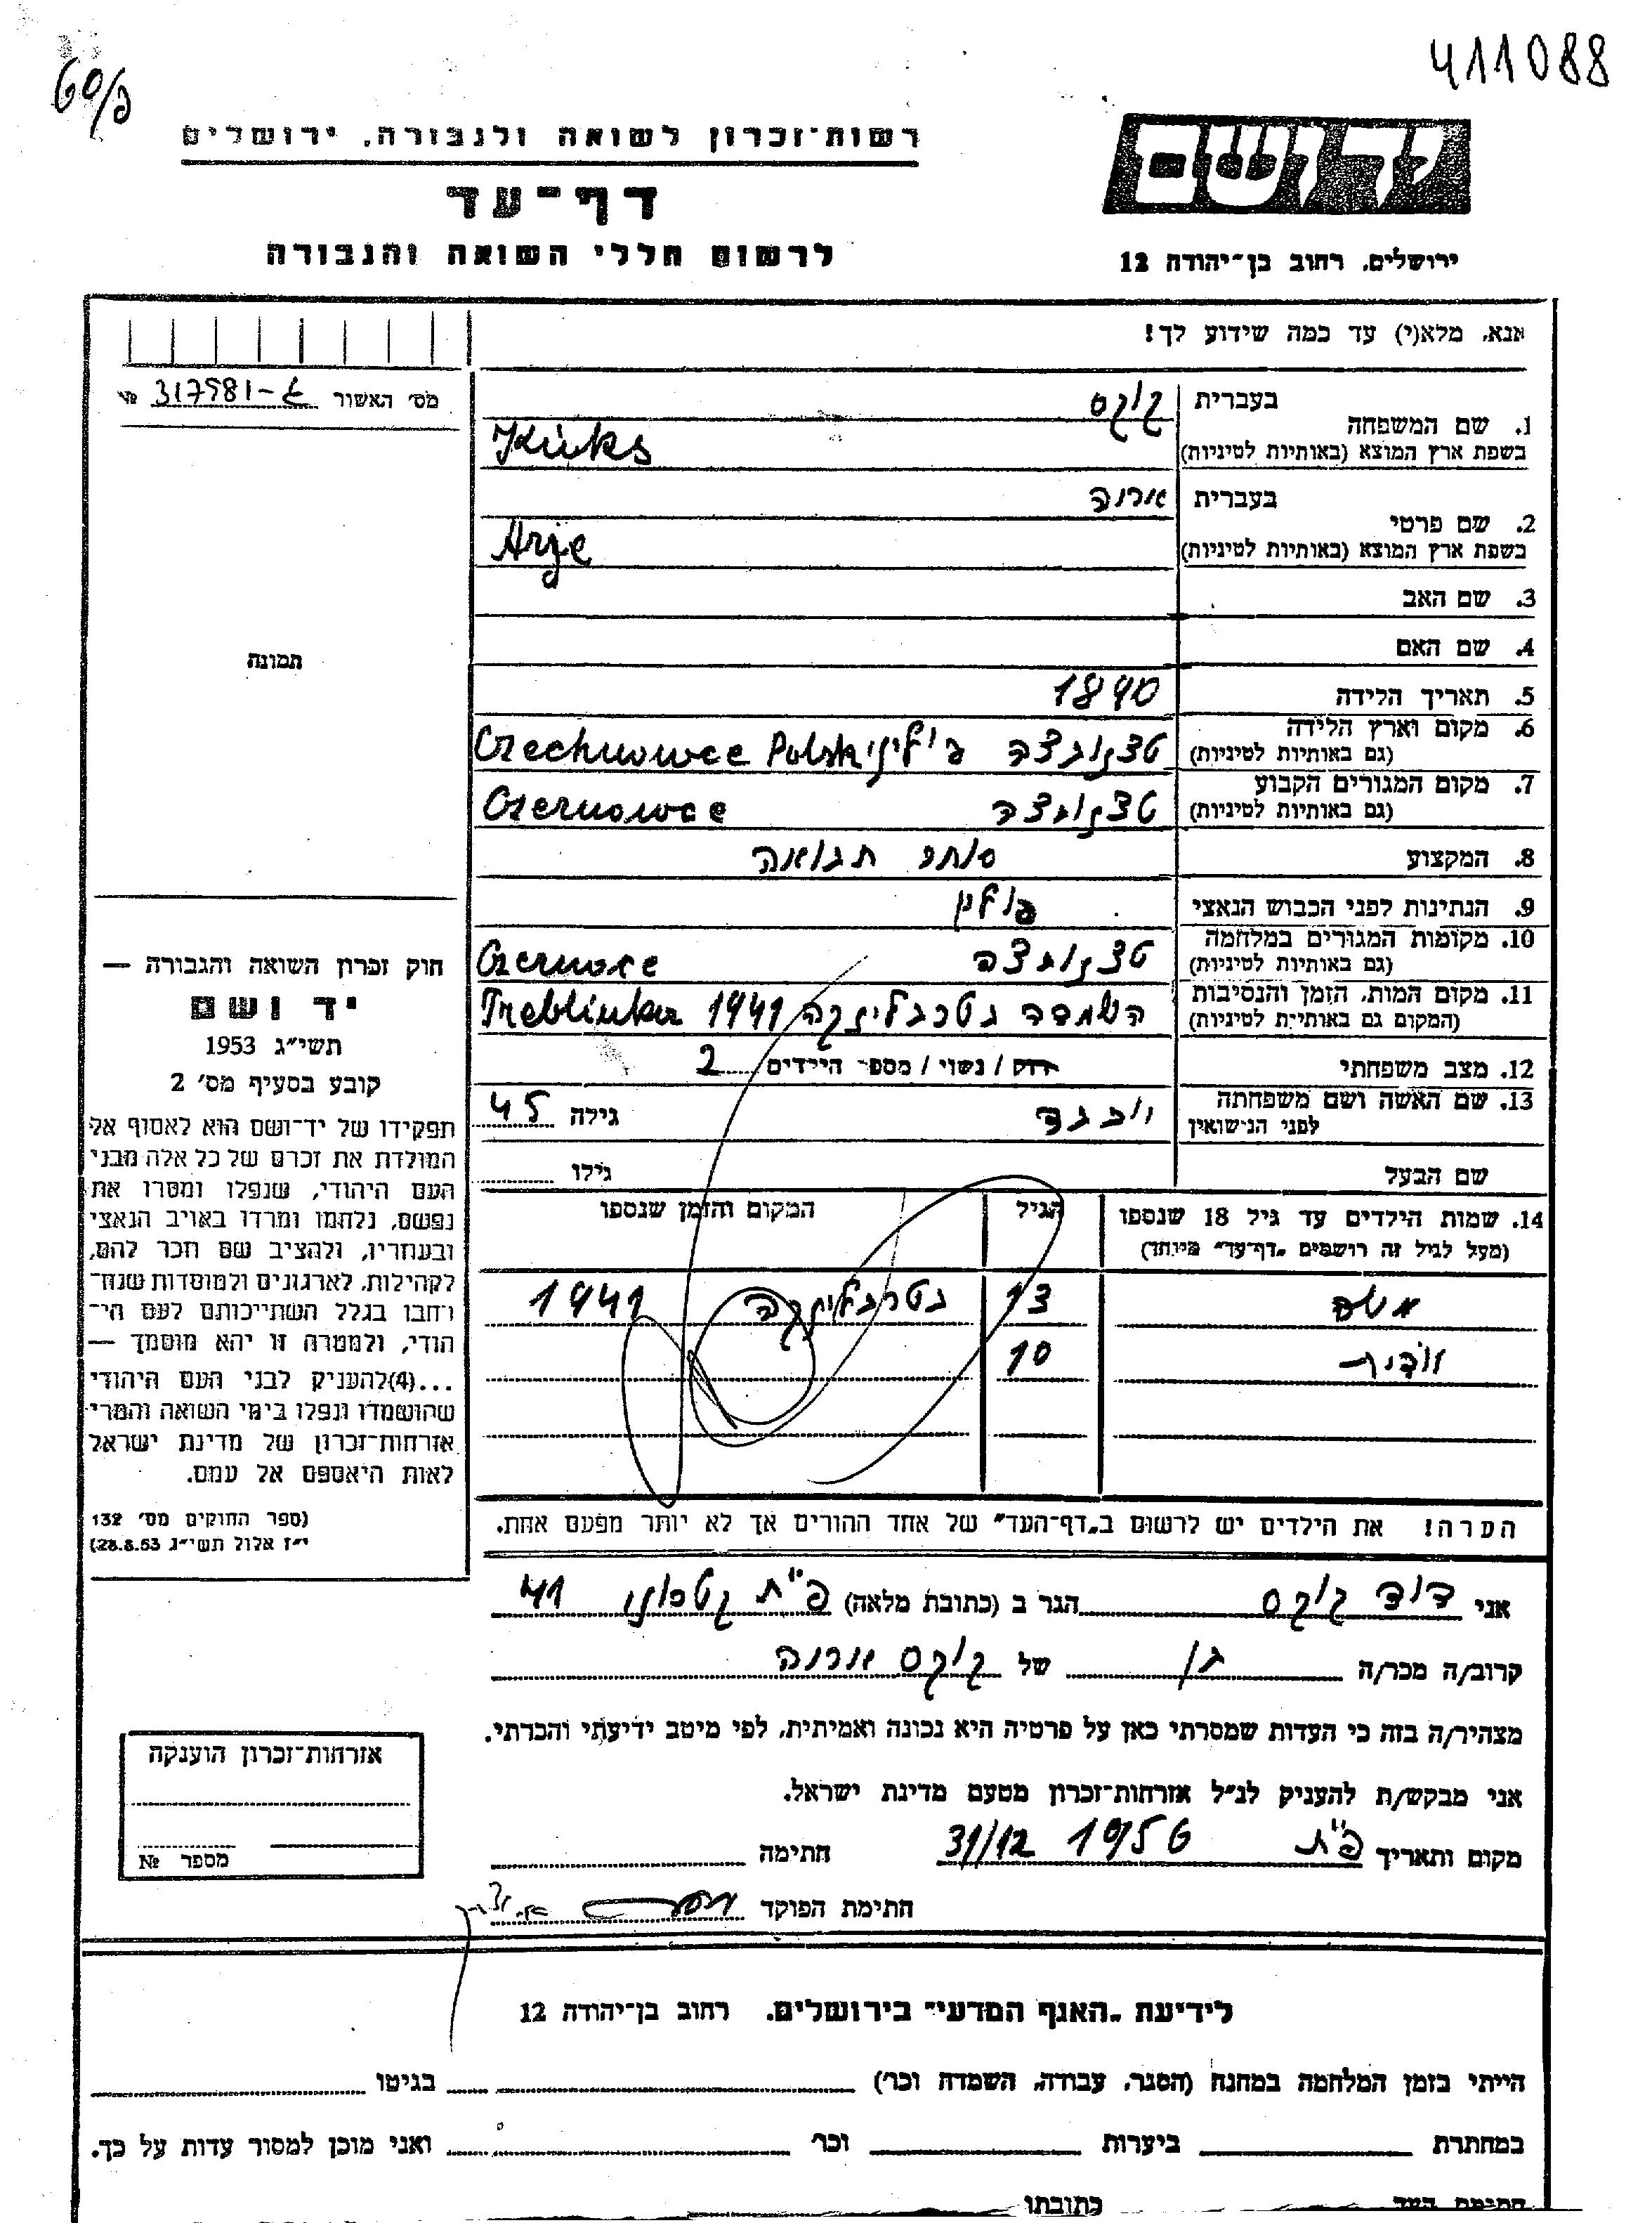 411088
60/פ
רשות-זכרון לשואה ולגבורה, ירושלים
דף-עד
לרשום חללי השואה והגבורה
יד ושם
ירושלים, רחוב בן-יהודה 12
אנא, מלא(י) עד כמה שידוע לך!
מס׳ האשור 317581 №
1. שם המשפחה בעברית קוקס
בשפת ארץ המוצא (באותיות לטיניות) Kuks
2. שם פרטי בעברית אריה
בשפת ארץ המוצא (באותיות לטיניות) Arje
3. שם האב
4. שם האם
תמונה
5. תאריך הלידה 1890
6. מקום וארץ הלידה
(גם באותיות לטיניות) פולין Czechnowce Polska
7. מקום המגורים הקבוע
(גם באותיות לטיניות) Czernowce
8. המקצוע סוחר תבואה
9. הנתינות לפני הכבוש הנאצי פולין
10. מקומות המגורים במלחמה
(גם באותיות לטיניות) Czernowce
11. מקום המות, הזמן והנסיבות
(המקום גם באותיות לטיניות) השמדה בטרבלינקה 1941 Treblinka
12. מצב משפחתי רוק / נשוי / מספר הילדים 2
13. שם האשה ושם משפחתה
לפני הנישואין גילה 45
שם הבעל גילו
14. שמות הילדים עד גיל 18 שנספו הגיל המקום והזמן שנספו
(מעל לגיל זה רושמים „דף-עד" מיוחד)
משה 13 בטרבלינקה 1941
10
הערה! את הילדים יש לרשום ב„דף-העד" של אחד ההורים אך לא יותר מפעם אחת.
חוק זכרון השואה והגבורה —
יד ושם
תשי״ג 1953
קובע בסעיף מס׳ 2
תפקידו של יד-ושם הוא לאסוף אל
המולדת את זכרם של כל אלה מבני
העם היהודי, שנפלו ומסרו את
נפשם, נלחמו ומרדו באויב הנאצי
ובעוזריו, ולהציב שם וזכר להם,
לקהילות, לארגונים ולמוסדות שנח-
רבו בגלל השתייכותם לעם הי-
הודי, ולמטרה זו יהא מוסמך —
...(4) להעניק לבני העם היהודי
שהושמדו ונפלו בימי השואה והמרי
אזרחות-זכרון של מדינת ישראל
לאות היאספם אל עמם.
(ספר החוקים מס׳ 132
י״ז אלול תשי״ג 28.8.53)
אני דוד קוקס הגר ב (כתובת מלאה) פ״ת 41
קרוב/ה מכר/ה בן של קוקס אריה
מצהיר/ה בזה כי העדות שמסרתי כאן על פרטיה היא נכונה ואמיתית, לפי מיטב ידיעתי והכרתי.
אני מבקש/ת להעניק לנ״ל אזרחות-זכרון מטעם מדינת ישראל.
מקום ותאריך פ״ת 31/12 1956 חתימה
חתימת הפוקד
אזרחות-זכרון הוענקה
מספר №
לידיעת „האגף המדעי" בירושלים, רחוב בן-יהודה 12
הייתי בזמן המלחמה במחנה (הסגר, עבודה, השמדה וכר׳) בגיטו
במחתרת ביערות וכר׳ ואני מוכן למסור עדות על כך.
חתימת העד כתובתו